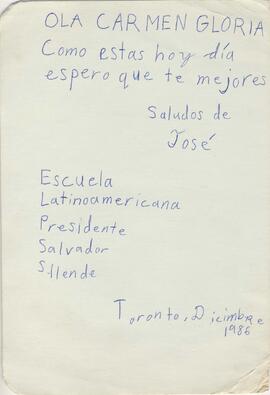 OLA CARMEN GLORIA
Como estas hoy día
espero que te mejores
Saludos de
José
Escuela
Latinoamericana
Presidente
Salvador
Sllende
Toronto, Dicimbre
1986